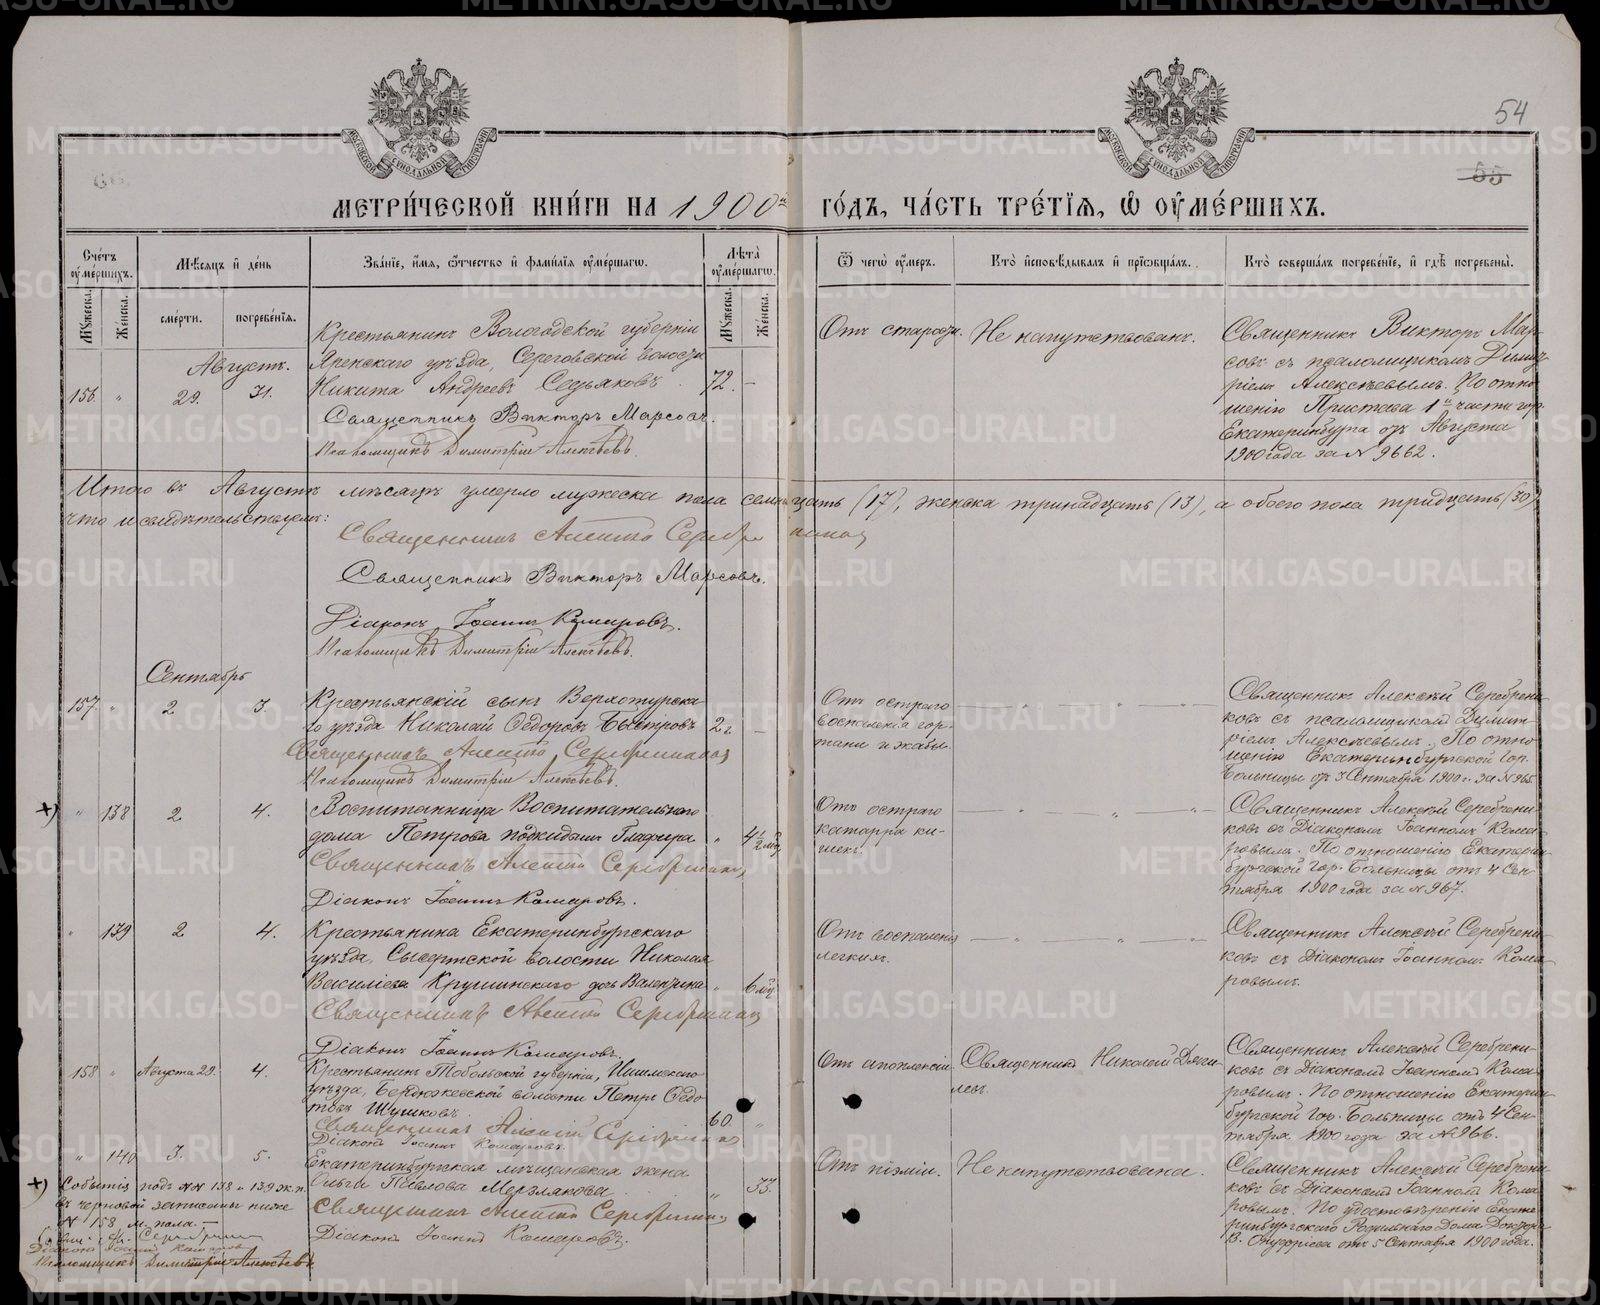 54
55
МОСКОВСКОЙ СѴНОДАЛЬНОЙ ТИПОГРАФІИ
МОСКОВСКОЙ СѴНОДАЛЬНОЙ ТИПОГРАФІИ
МЕТРИ́ЧЕСКОЙ КНИ́ГИ НА 1900й ГО́ДЪ, ЧА́СТЬ ТРЕ́ТЇѦ, Ѡ҆ ОУ҆МЕ́РШИХЪ.
Сче́тъ оу҆ме́ршихъ.
Мꙋ́жеска.
Же́нска.
Мѣ́сѧцъ и҆ де́нь
сме́рти.
погребе́нїѧ.
Зва́нїе, и҆́мѧ, ѻ҆́тчество и҆ фами́лїѧ оу҆ме́ршагѡ.
Лѣ́та оу҆ме́ршагѡ.
Мꙋ́жеска.
Же́нска.
Ѿ чегѡ̀ оу҆́меръ.
Кто̀ и҆сповѣ́дывалъ и҆ прїѡбща́лъ.
Кто̀ соверша́лъ погребе́нїе, и҆ гдѣ̀ погребе́ны.
Августъ.
156. " 29. 31.
Крестьянинъ Вологодской губерніи
Яренскаго уѣзда, Сереговской волости
Никита Андреевъ Седьяковъ. 72. –
Священникъ Викторъ Марсовъ.
Псаломщикъ Димитрій Алексѣевъ.
Отъ старости.
Не напутствованъ.
Священникъ Викторъ Мар-
совъ съ псаломщикомъ Димит-
ріемъ Алексѣевымъ. По отно-
шенію Пристава 1й части гор.
Екатеринбурга отъ Августа
1900 года за № 9662.
Итого въ Августѣ мѣсяцѣ умерло мужеска пола семнадцать (17), женска тринадцать (13), а обоего пола тридцать (30)
что и свидѣтельствуемъ:
Священникъ Алексій Серебренниковъ
Священникъ Викторъ Марсовъ.
Діаконъ Іоаннъ Комаровъ.
Псаломщикъ Димитрій Алексѣевъ.
Сентябрь
157. " 2 3.
Крестьянскій сынъ Верхотурска-
го уѣзда Николай Ѳедоровъ Быстровъ 2 г. –
Священникъ Алексій Серебренниковъ
Псаломщикъ Димитрій Алексѣевъ.
Отъ остраго
воспаленія гор-
тани и жабы.
Священникъ Алексѣй Серебрени-
ковъ съ псаломщикомъ Димит-
ріемъ Алексѣевымъ. По отно-
шенію Екатеринбургской Гор.
Больницы отъ 3 Сентября 1900 г. за № 965
+) " 138 2 4.
Воспитанница Воспитательнаго
дома Петрова подкидышъ Глафира " 4½ мѣ
Священникъ Алексій Серебренниковъ
Діаконъ Іоаннъ Комаровъ.
Отъ остраго
катарра ки-
шекъ.
Священникъ Алексѣй Серебрени-
ковъ съ Діакономъ Іоанномъ Кома-
ровымъ. По отношенію Екатерин-
бургской Гор. Больницы отъ 4 Сен-
тября 1900 года за № 967.
" 139 2 4.
Крестьянина Екатеринбургскаго
уѣзда, Сысертской волости Николая
Василіева Крушинскаго дочь Валентина " 6 мѣ.
Священникъ Алексій Серебренниковъ
Діаконъ Іоаннъ Комаровъ.
Отъ воспаленія
легкихъ.
Священникъ Алексѣй Серебрени-
ковъ съ Діакономъ Іоанномъ Кома-
ровымъ.
158 " Августа 29. 4.
Крестьянинъ Тобольской губерніи, Ишимскаго
уѣзда, Бердюжской волости Петръ Ѳедо-
товъ Шушковъ. 60. "
Священникъ Алексій Серебренниковъ
Діаконъ Іоаннъ Комаровъ.
Отъ апоплексіи
Священникъ Николай Дяги-
левъ.
Священникъ Алексѣй Серебрени-
ковъ съ Діакономъ Іоанномъ Кома-
ровымъ. По отношенію Екатерин-
бургской Гор. Больницы отъ 4 Сен-
тября 1900 года за № 966.
" 140 3. 5.
Екатеринбургская мѣщанская жена
Ольга Павлова Мерзлякова " 33.
Священникъ Алексій Серебренниковъ
Діаконъ Іоаннъ Комаровъ.
Отъ піэміи.
Не напутствована.
Священникъ Алексѣй Серебрени-
ковъ съ Діакономъ Іоанномъ Кома-
ровымъ. По удостовѣренію Екате-
ринбургскаго Родильнаго Дома Доктора
В. Онуфріева отъ 5 Сентября 1900 года.
+) Событія подъ №№ 138 и 139 ж. п.
въ черновой записаны ниже
№ 158 м. пола. –
Свящ. Ал. Серебрен
Діаконъ Іоаннъ Комаровъ
Псаломщикъ Димитрій Алексѣевъ
METRIKI.GASO-URAL.RU